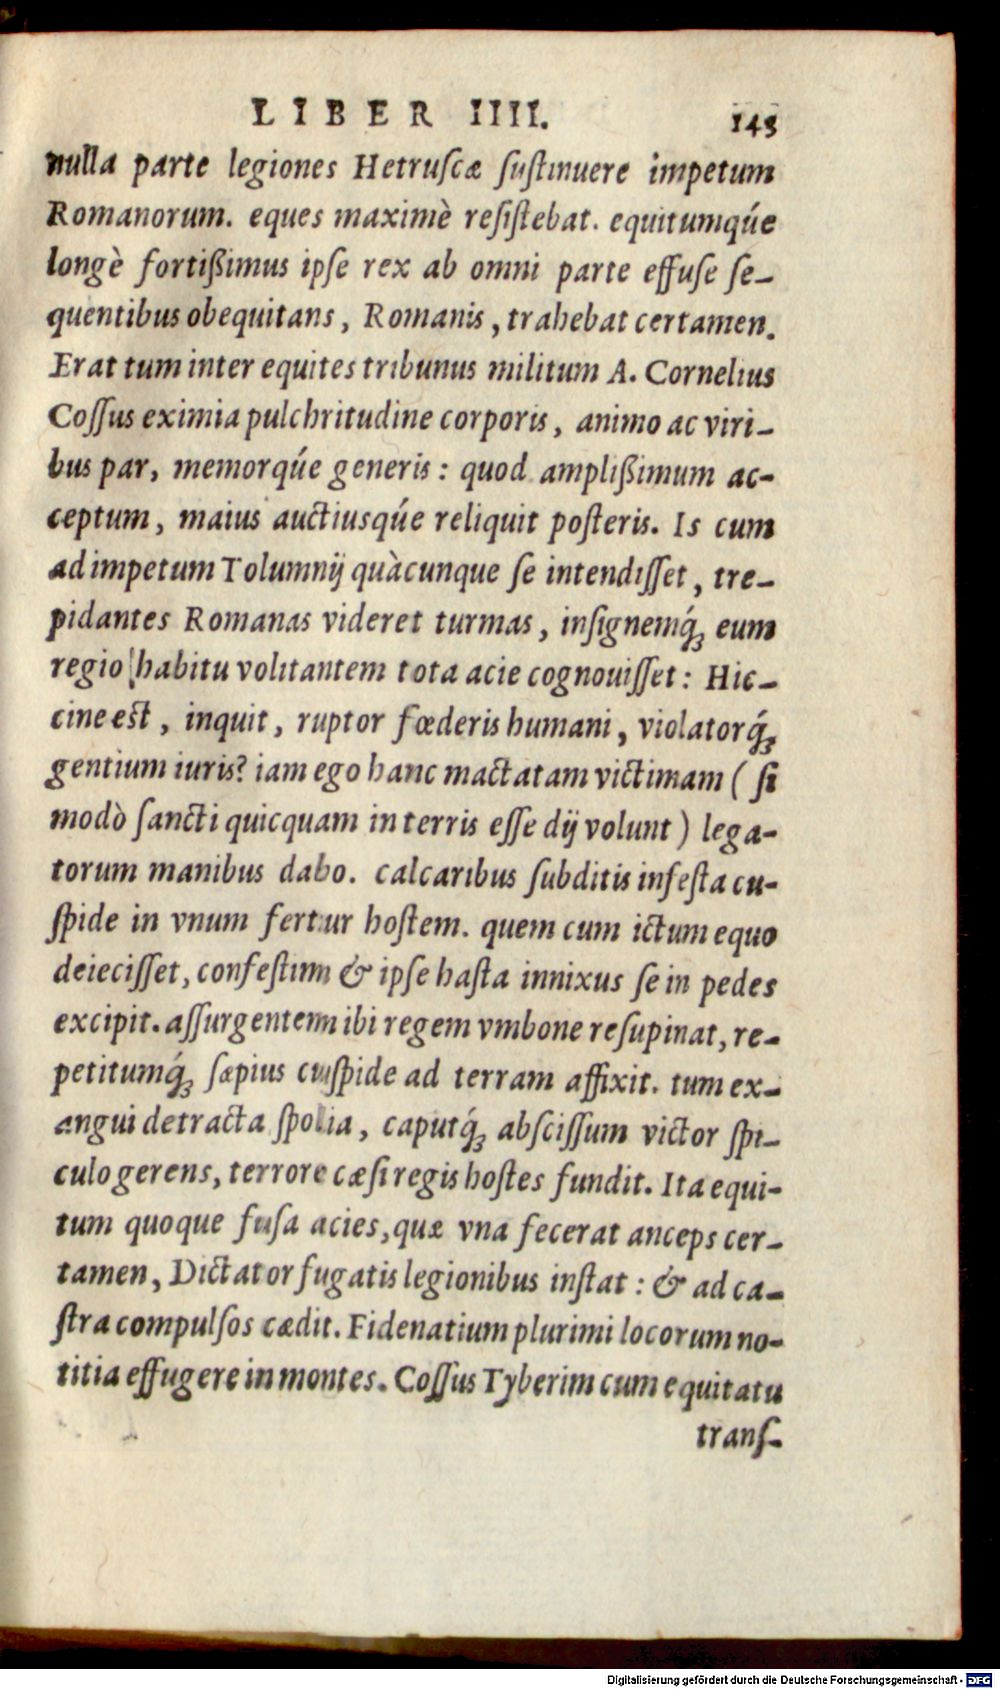 LIBER IIII. 143
nulla parte legiones Hetruſcæ ſuſtinuere impetum
Romanorum. eques maximè reſiſtebat. equitumq́ue
longè fortißimus ipſe rex ab omni parte effuſe ſe-
quentibus obequitans, Romanis, trahebat certamen.
Erat tum inter equites tribunus militum A. Cornelius
Coſſus eximia pulchritudine corporis, animo ac viri-
bus par, memorq́ue generis: quod amplißimum ac-
ceptum, maius auctiusq́ue reliquit poſteris. Is cum
ad impetum Tolumnij quàcunque ſe intendiſſet, tre-
pidantes Romanas videret turmas, inſignemq́ꝫ eum
regio habitu volitantem tota acie cognouiſſet: Hic-
cine est, inquit, ruptor fœderis humani, violatorq́ꝫ
gentium iuris? iam ego hanc mactatam victimam (ſi
modò ſancti quicquam in terris eſſe dij volunt) lega-
torum manibus dabo. calcaribus ſubditis infeſta cu-
ſpide in vnum fertur hoſtem. quem cum ictum equo
deieciſſet, confeſtim & ipſe haſta innixus ſe in pedes
excipit. aſſurgentem ibi regem vmbone reſupinat, re-
petitumq́ꝫ ſæpius cuſpide ad terram affixit. tum ex-
angui detracta ſpolia, caputq́ꝫ abſciſſum victor ſpi-
culo gerens, terrore cæſi regis hoſtes fundit. Ita equi-
tum quoque fuſa acies, quæ vna fecerat anceps cer-
tamen, Dictator fugatis legionibus inſtat: & ad ca-
ſtra compulſos cædit. Fidenatium plurimi locorum no-
titia effugere in montes. Coſſus Tyberim cum equitatu
tranſ-
Digitalisierung gefördert durch die Deutsche Forschungsgemeinschaft - DFG